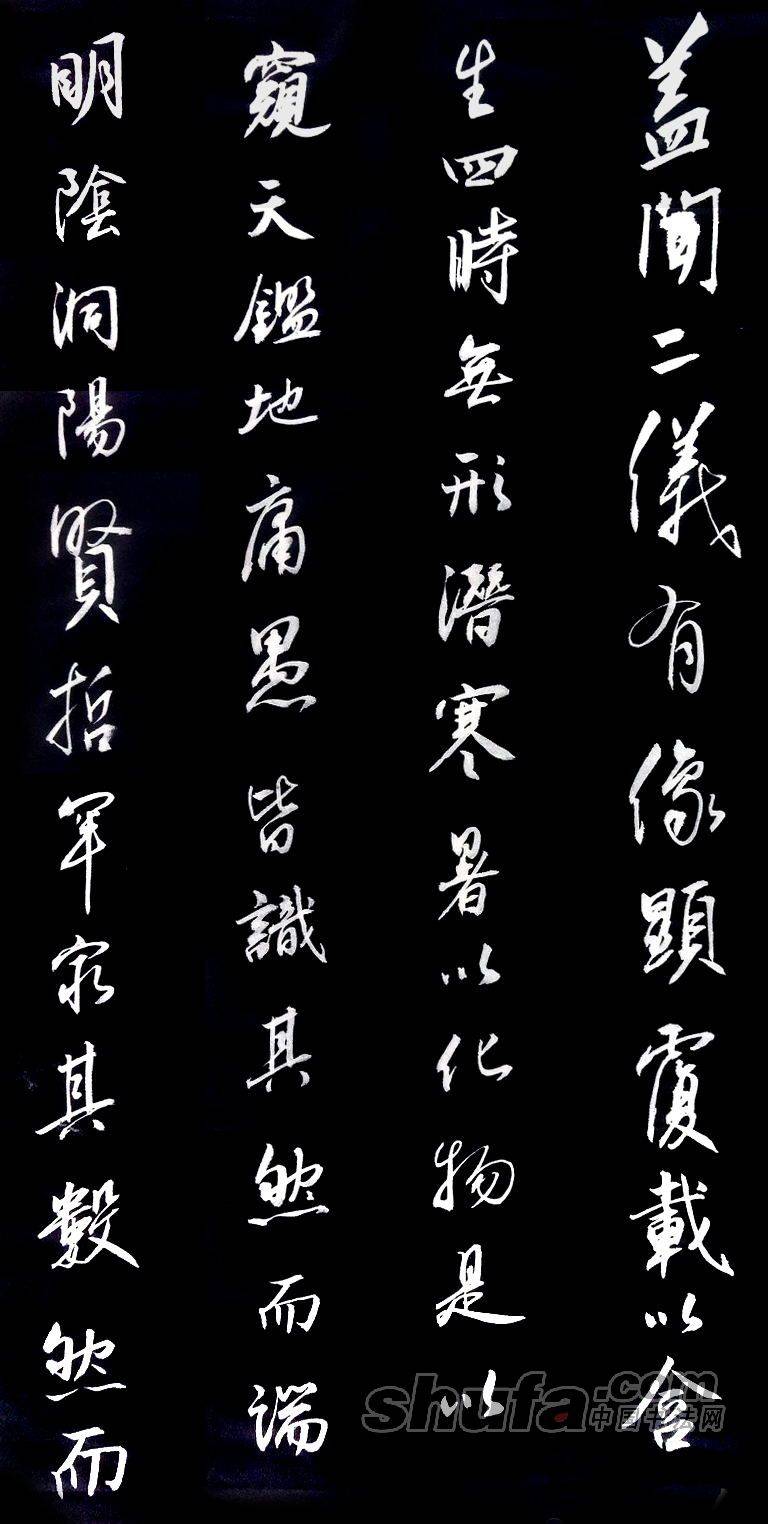 盖聞二儀有像顯覆載以含
生四時無形潛寒暑以化物是以
窺天鑑地庸愚皆識其然而端
明陰洞陽賢哲罕窮其數然而
shufa.com
中国书法网